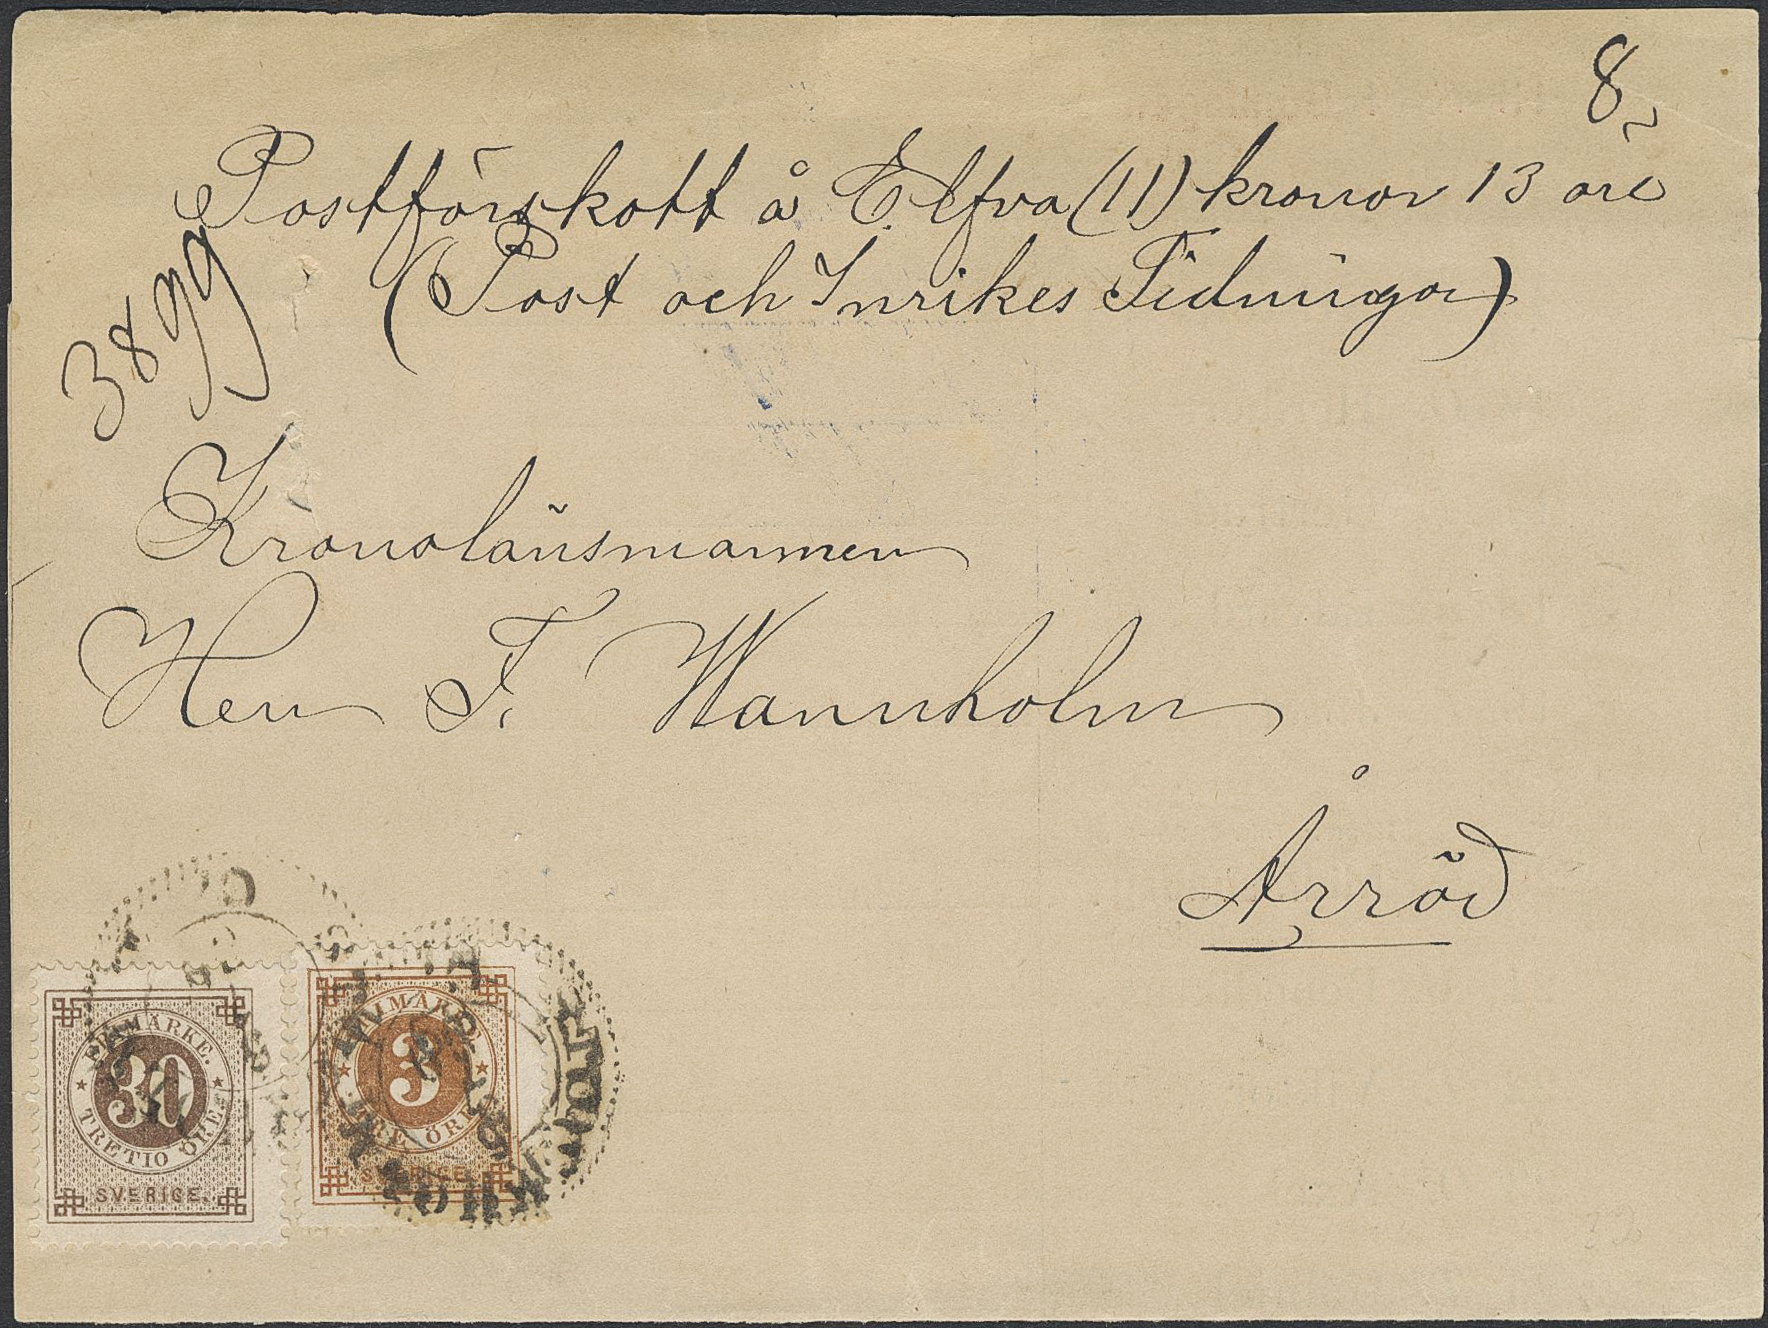 8
Postförskott å Elfva (11) kronor 13 öre
(Post och Inrikes Tidningar)
3899
Kronolänsmannen
Herr F. Wannholm
Årröd
FRIMÄRKE.
30
TRETIO ÖRE
SVERIGE.
FRIMÄRKE
3
TRE ÖRE
SVERIGE